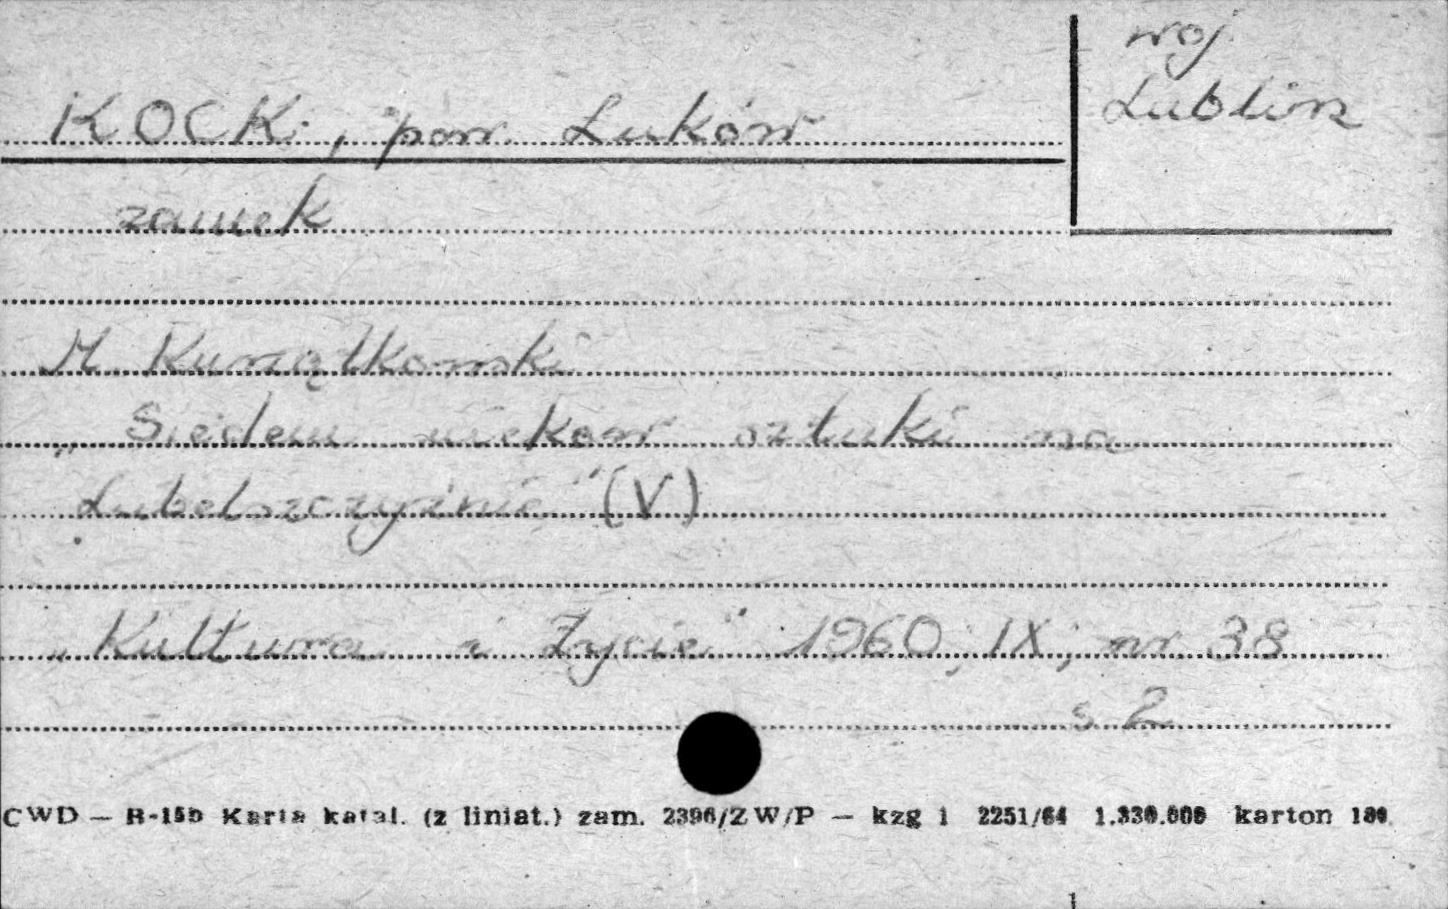 woj
Lublin
KOCK, pow. Łuków
zamek
H. Kurzątkowski
„Siedem wieków sztuki na
Lubelszczyźnie" (V)
„Kultura i Życie" 1960; IX; nr 38
s. 2
CWD — B-15b Karta katal. (z liniat.) zam. 2396/ZW/P — kzg 1 2251/64 1.330.000 karton 180